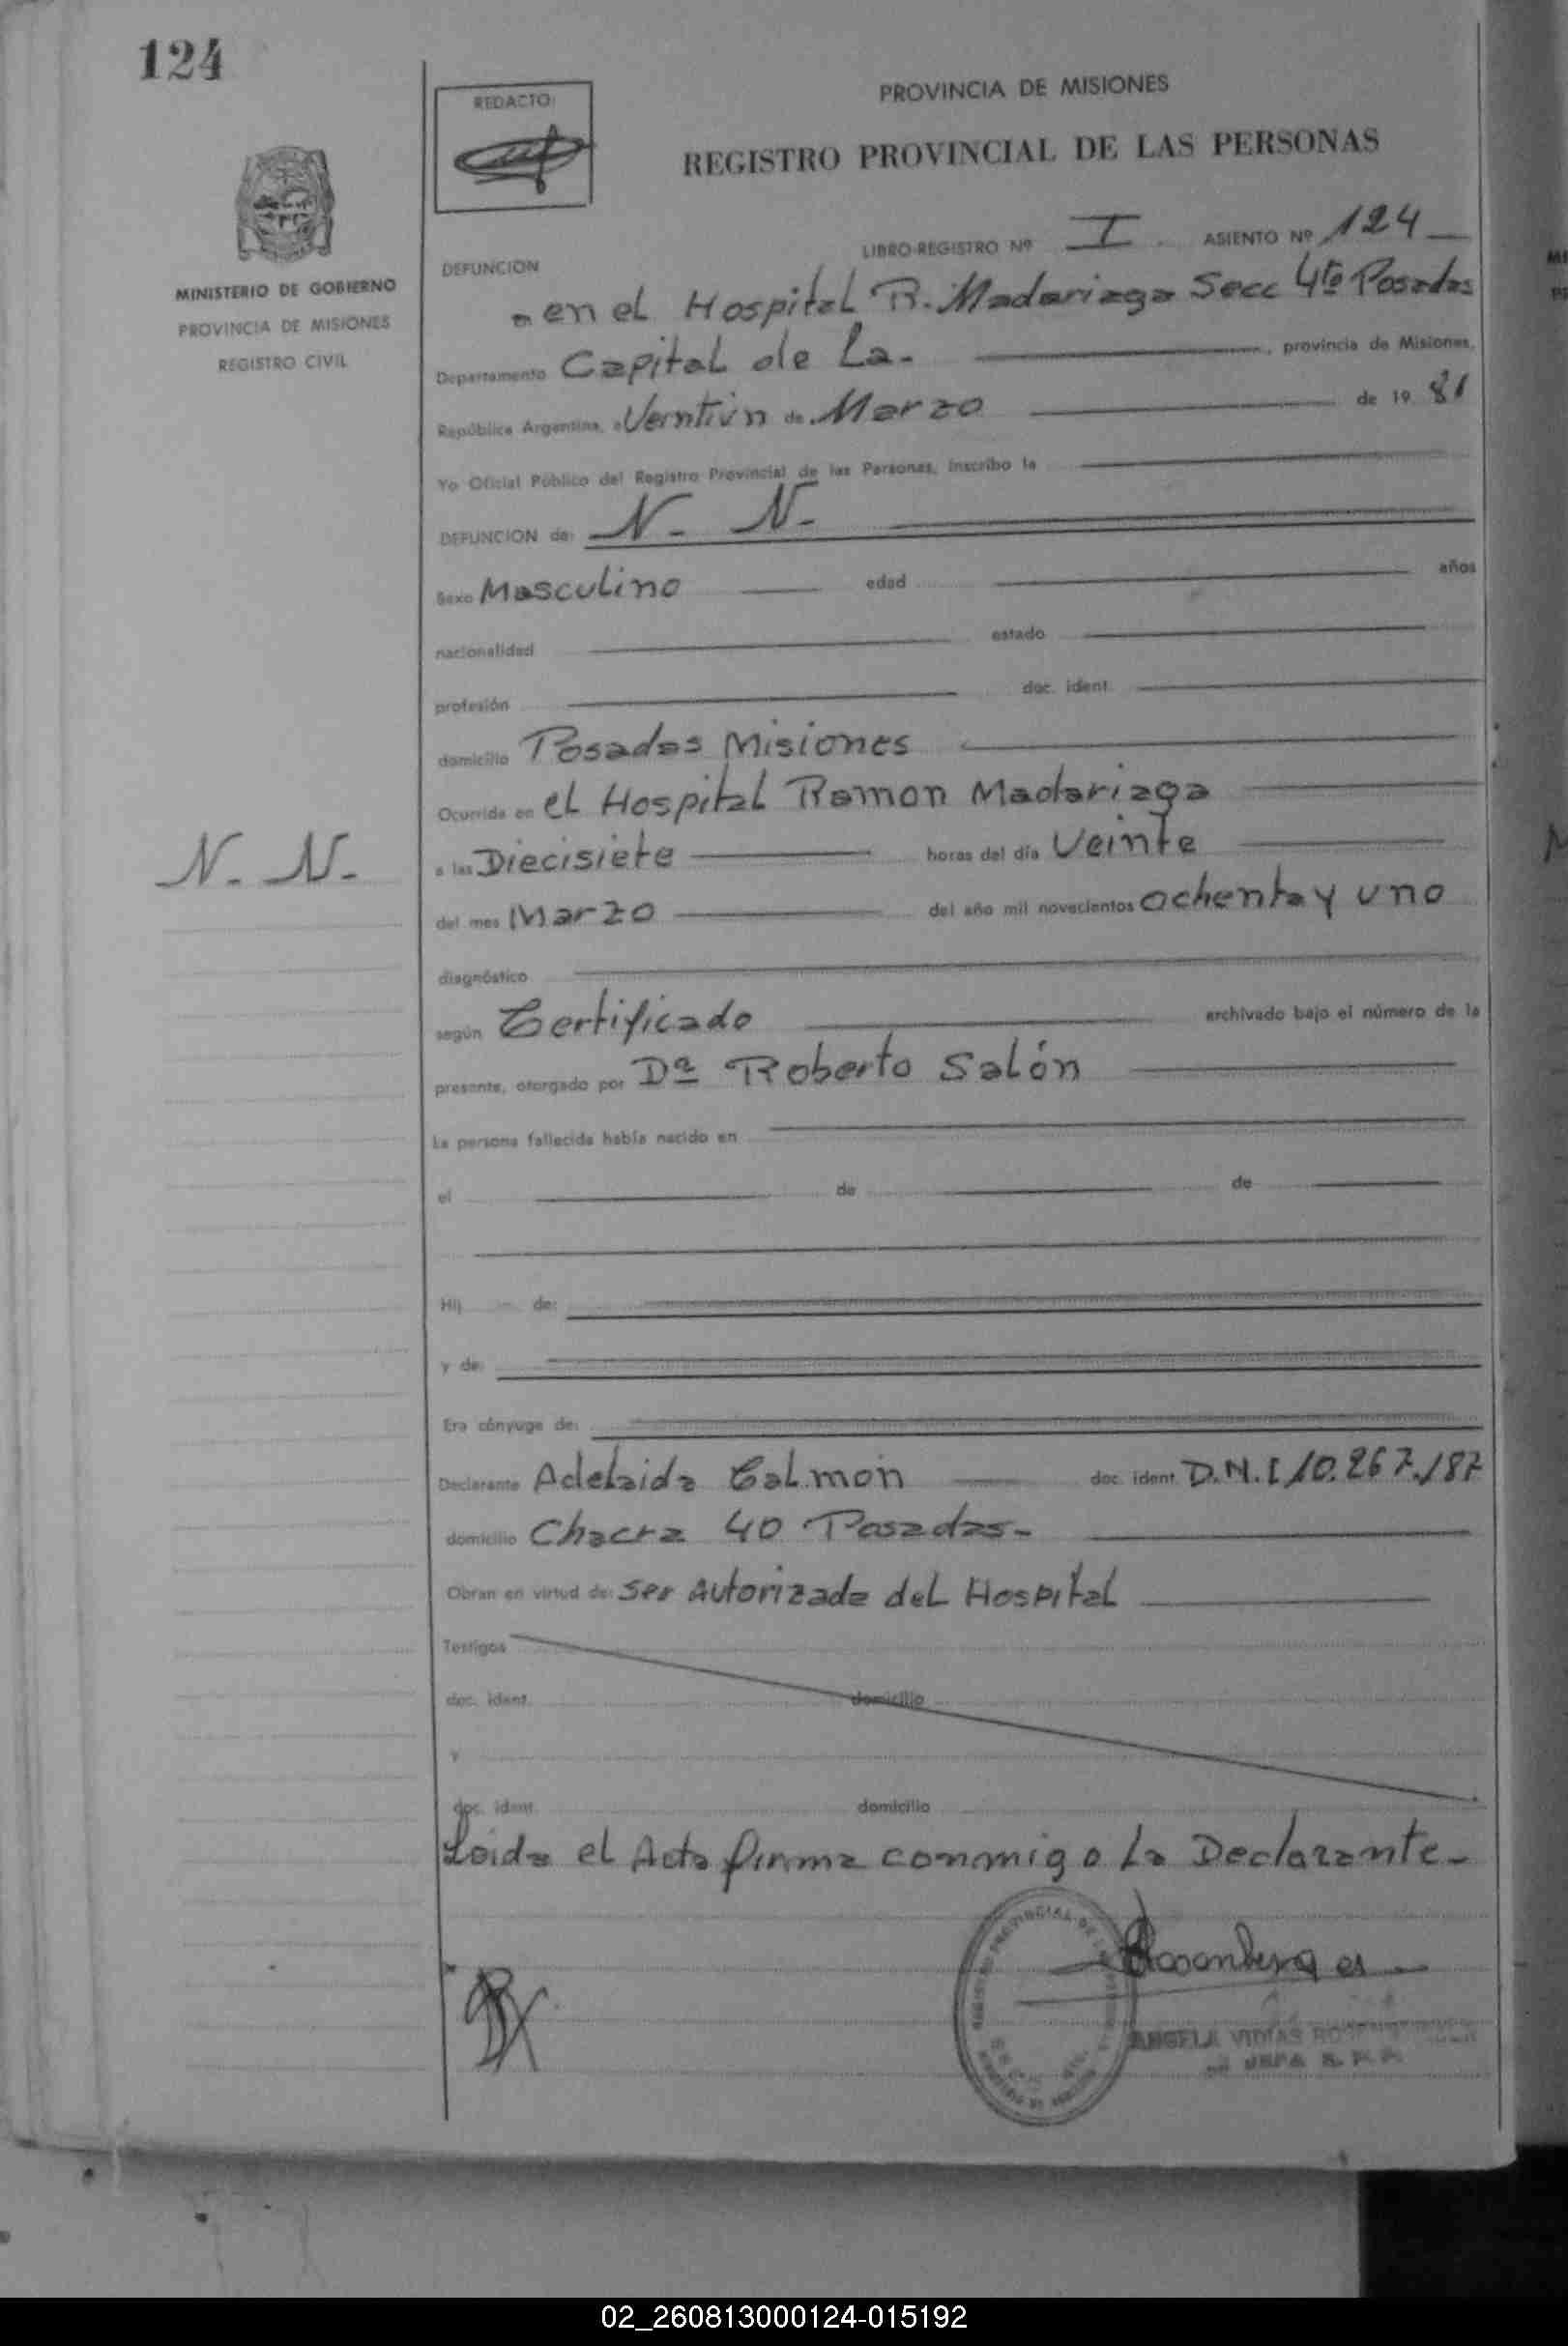 124
REDACTO:
PROVINCIA DE MISIONES
REGISTRO PROVINCIAL DE LAS PERSONAS
MINISTERIO DE GOBIERNO
PROVINCIA DE MISIONES
REGISTRO CIVIL
LIBRO-REGISTRO Nº I. ASIENTO Nº 124
DEFUNCION
en el Hospital R. Madariaga Secc 4ta Posadas
Departamento Capital de La. , provincia de Misiones,
República Argentina, a Veintiun de Marzo de 19 81
Yo Oficial Público del Registro Provincial de las Personas, inscribo la
DEFUNCION de: N. N.
Sexo Masculino edad años
nacionalidad estado
profesión doc. ident.
domicilio Posadas Misiones
Ocurrida en el Hospital Ramon Madariaga
N. N.
a las Diecisiete horas del día Veinte
del mes Marzo del año mil novecientos ochenta y uno
diagnóstico
según Certificado archivado bajo el número de la
presente, otorgado por Dº Roberto Salón
La persona fallecida había nacido en
el de de
Hij de:
y de:
Era cónyuge de:
Declarante Adelaida Calmon doc. ident. D.N.I 10.267.187
domicilio Chacra 40 Posadas-
Obran en virtud de: ser Autorizada del Hospital
Testigos
doc. ident. domicilio
y
doc. ident. domicilio
Leida el Acta firma conmigo la Declarante-
ANGELA
02_260813000124-015192